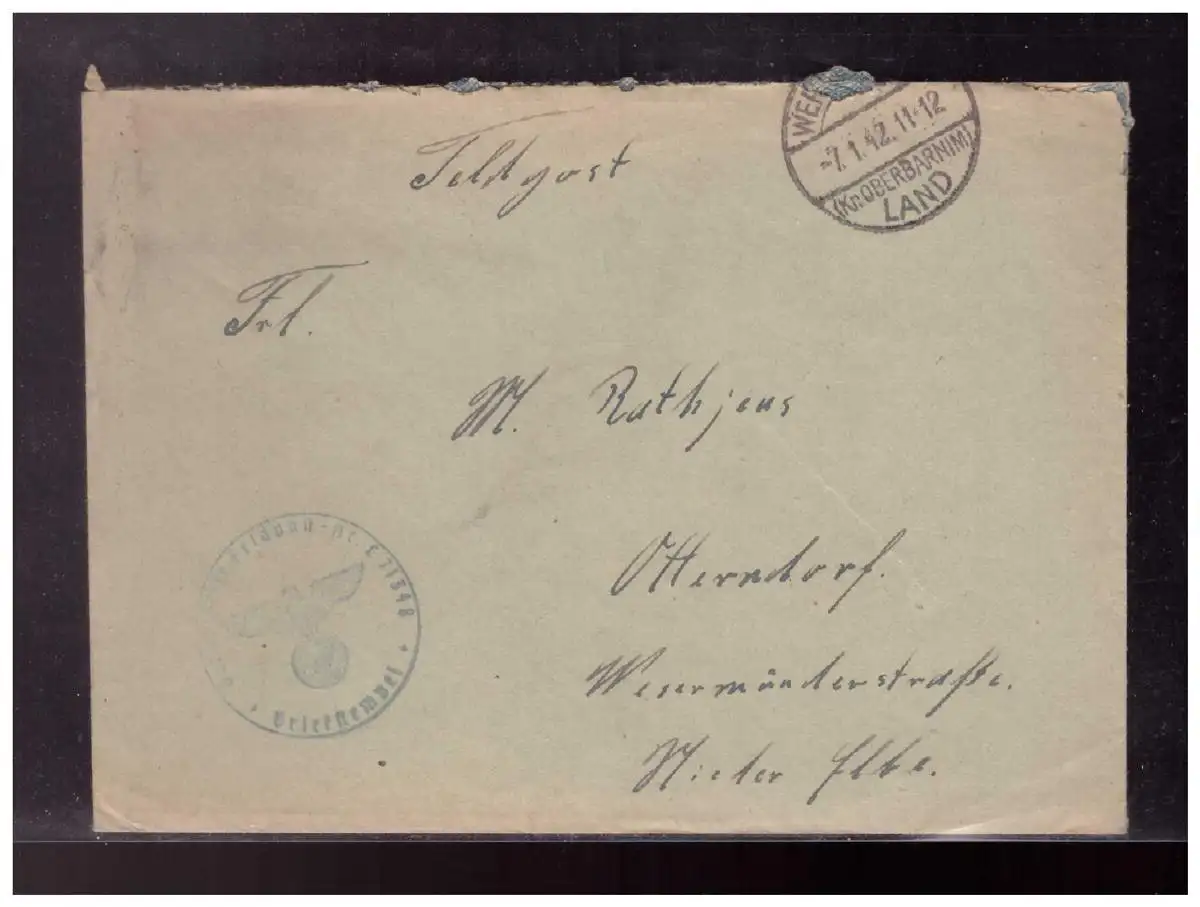 Feldpost
-7.1.42.11-12
(Kr. OBERBARNIM)
LAND
Frl.
M. Rathjens
Otterndorf.
Wesermünderstraße.
Nieder Elbe.
Feldpost-Nr. L 11348
Briefstempel